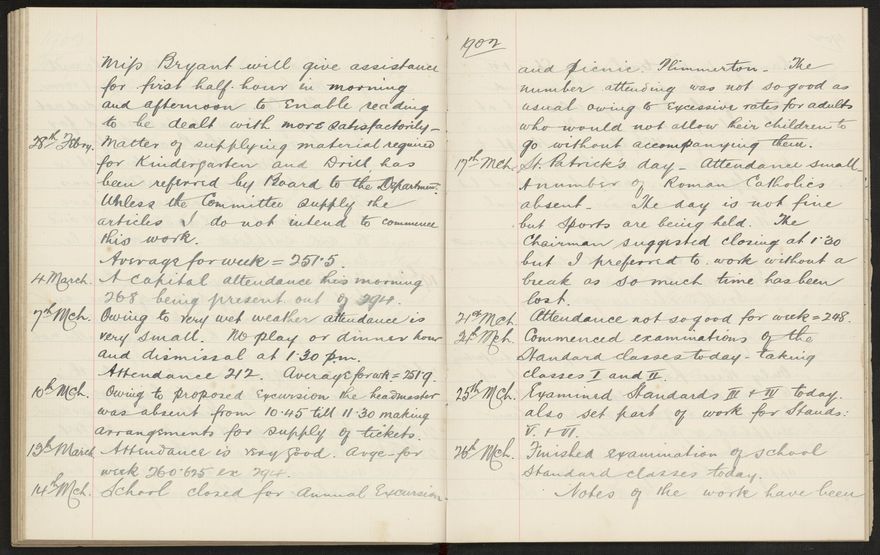 Miss Bryant will give assistance
for first half-hour in morning
and afternoon to enable reading
to be dealt with more satisfactorily -
28th Febry. Matter of supplying material required
for Kindergarten and Drill has
been referred by Board to the Department.
Unless the Committee supply the
articles I do not intend to commence
this work.
Average for week = 251·5.
4 March. A capital attendance this morning
268 being present out of 294.
7th Mch. Owing to very wet weather attendance is
very small. No play or dinner hour
and dismissal at 1·30 pm.
Attendance 212. Average for wk = 251·9.
10th Mch. Owing to proposed excursion the headmaster
was absent from 10·45 till 11·30 making
arrangements for supply of tickets.
13th March Attendance is very good. Avge - for
week 260·625 ex 294.
14th Mch. School closed for Annual Excursion
1902
and picnic Plimmerton - The
number attending was not so good as
usual owing to excessive rates for adults
who would not allow their children to
go without accompanying them.
17th Mch. St. Patrick's day - Attendance small -
A number of Roman Catholics
absent. The day is not fine
but Sports are being held. The
Chairman suggested closing at 1·30
but I preferred to work without a
break as so much time has been
lost.
21st Mch. Attendance not so good for week = 248.
Mch. Commenced examinations of the
Standard classes today - taking
classes I and II.
25th Mch. Examined Standards III + IV today.
also set part of work for Stands:
V. + VI.
26th Mch. Finished examination of school
Standard classes today.
Notes of the work have been